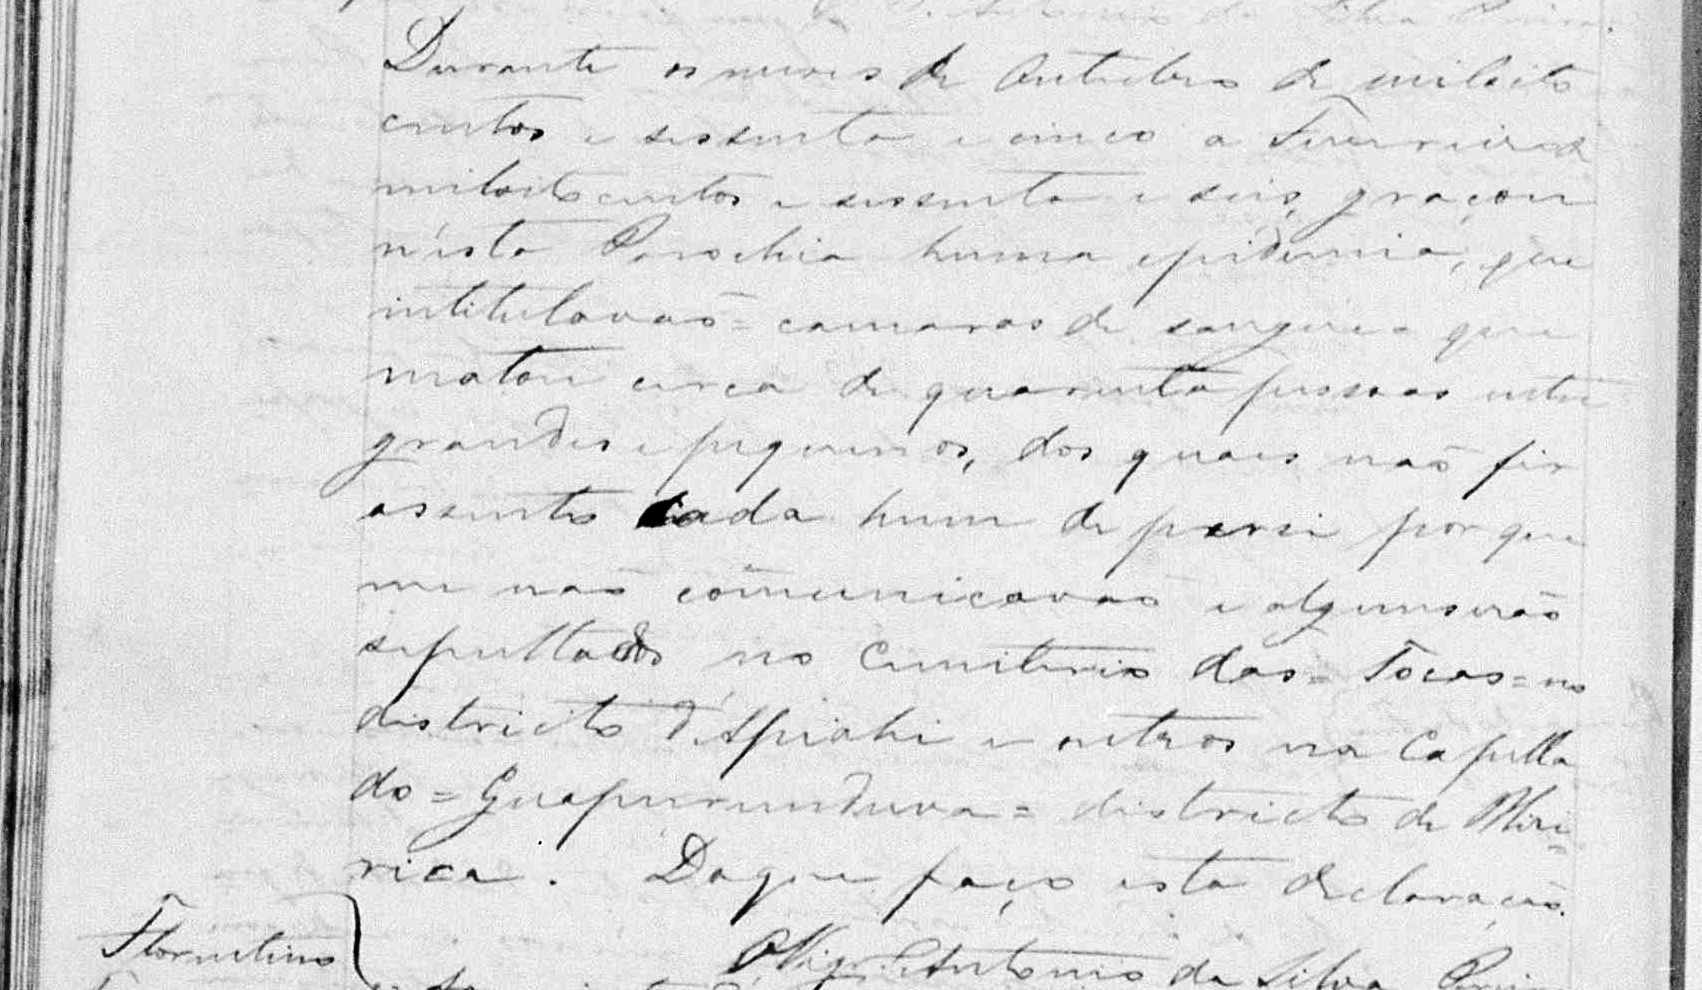 Antonio da Silva
Durante os mezes de Outubro de mil oito
centos e sessenta e cinco a Fevereiro de
mil oito centos e sessenta e seis, graçou
n'esta Parochia huma epidemia, que
intitulavão = camaras de sangue = que
matou cerca de quarenta pessoas entre
grandes e pequenos, dos quaes não fiz
assento cada hum de persi por que
me não comunicavão e alguns serão
sepultados no Cemiterio das = Tocas = no
districto d'Apiahi e outros na Capella
do = Guapurunduva = districto de Xiri=
rica. Do que faço esta declaração.
O Vigr.º Antonio da Silva
Florentino